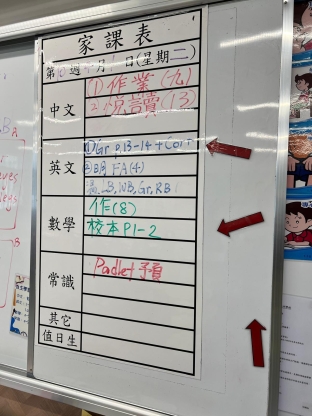 家課表
第 週 月 日(星期二)
中文
(1)作業(九)
(2)悅讀(13)
英文
①Gr p.13-14 + Corr
②明 FA(4)
LB, WB, Gr, RB
數學
作(8)
校本P1-2
常識
Padlet 予頁
其它
值日生